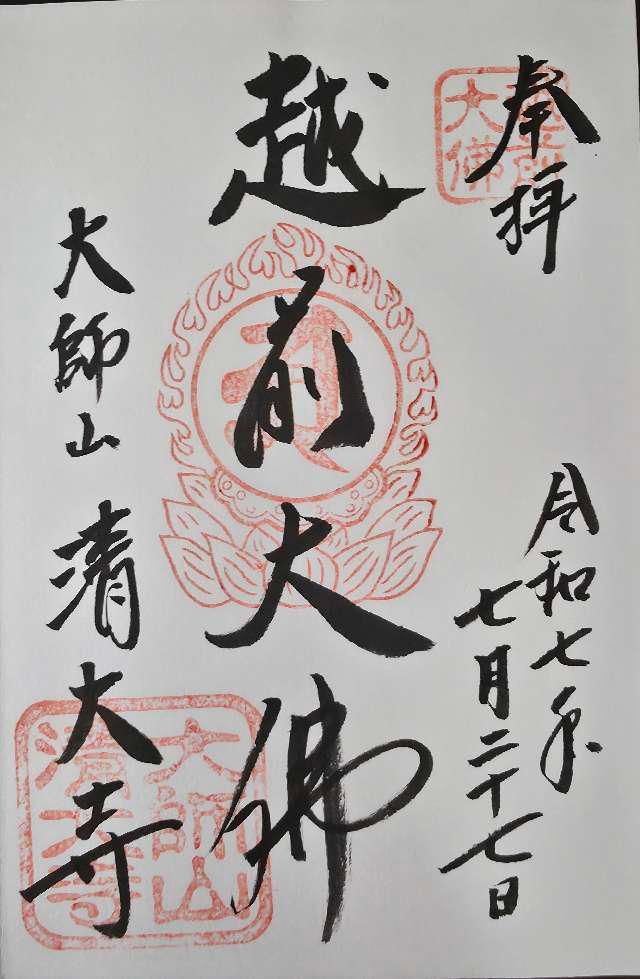 奉拝
越前
大佛
令和七年
七月二十七日
越前大佛
大師山 清大寺
大師山
清大寺